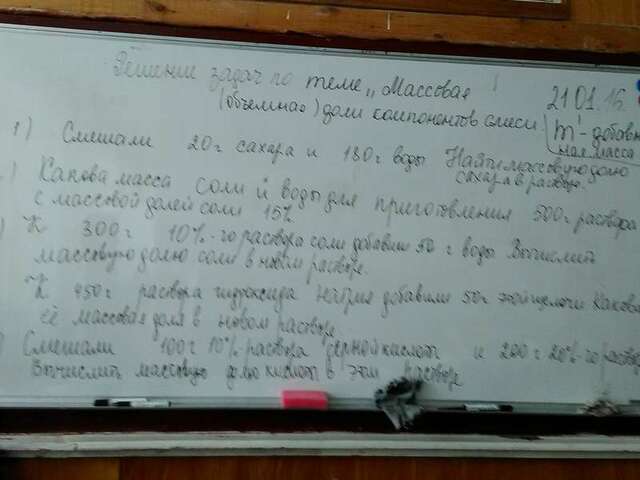 Решение задач по теме „Массовая
(объемная) доли компонентов смеси"
21.01.16.
m¹ - добавлен
ная масса
1) Смешали 20 г сахара и 180 г воды Найти массовую долю
сахара в растворе.
) Какова масса соли и воды для приготовления 500 г раствора
с массовой долей соли 15%
) К 300 г 10%-го раствора соли добавили 50 г воды Вычислить
массовую долю соли в новом растворе.
К 450 г раствора гидроксида натрия добавили 50 г этой щелочи Какова
её массовая доля в новом растворе
) Смешали 100 г 10% раствора серной кислоты и 200 г 20%-го раствора
Вычислить массовую долю кислоты в этом растворе